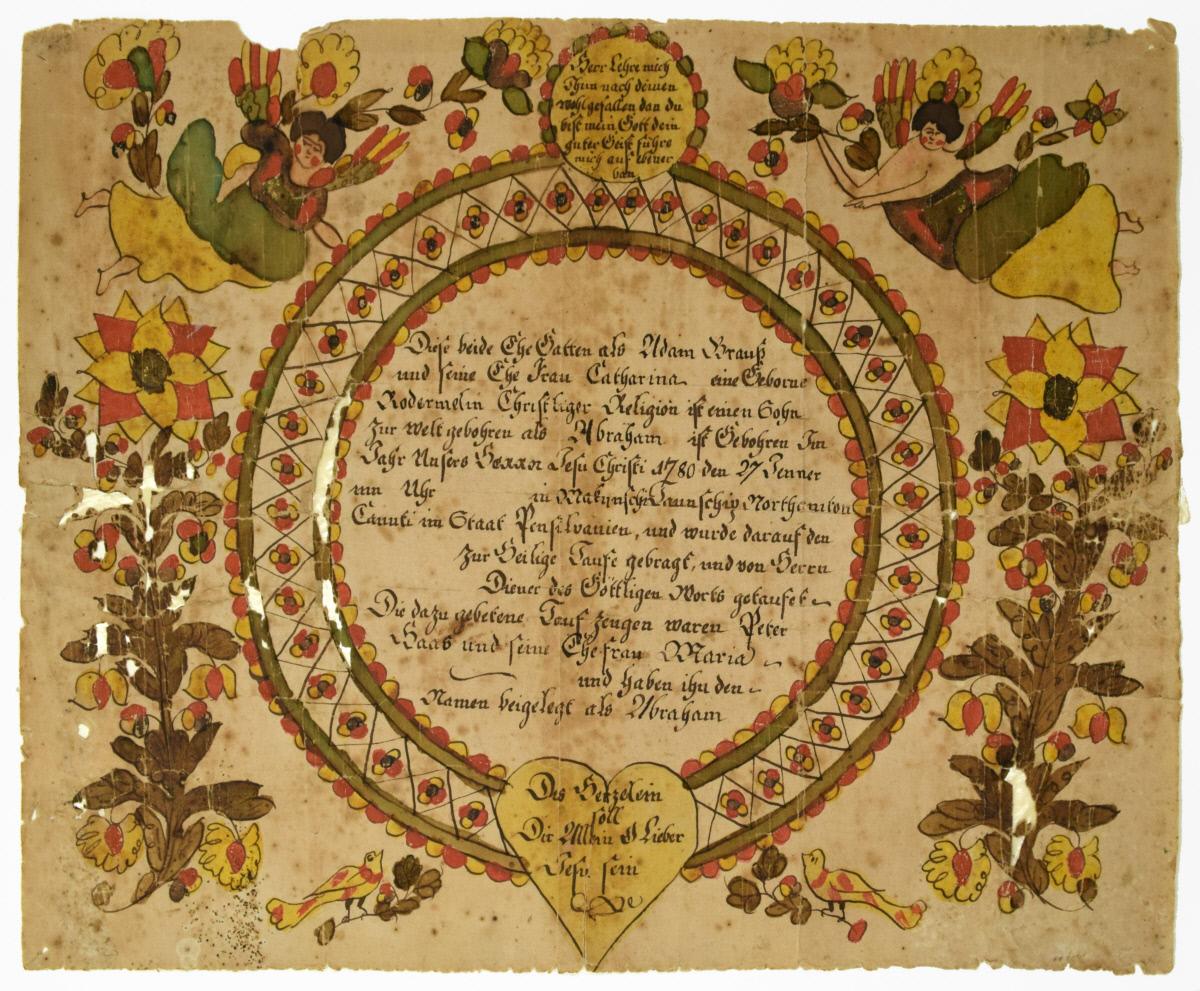 Herr Lehre mich
Thun nach deinen
wohlgefallen dan du
bist mein Gott dein
guter Geist führe
mich auf ebener
ban
Diese beide Ehe Gatten als Adam Brauß
und seine Ehe Frau Catharina eine Geborne
Rodermelin Christliger Religion ist einen Sohn
Zur welt gebohren als Abraham ist Gebohren Im
Jahr Unsers Herrn Jesu Christi 1780 den 27 Jenner
um Uhr in Makunschi Taunschip Northamton
Caunti im Staat Pensilvanien, und wurde darauf den
Zur Heilige Taufe gebragt, und von Herrn
Diener des Göttligen Worts getaufet
Die dazu gebetene Tauf zeugen waren Peter
Haas und seine Ehe frau Maria
und haben ihn den
Namen beigelegt als Abraham
Dis Hertzelein
soll
Dir Allein O Lieber
Jesu sein